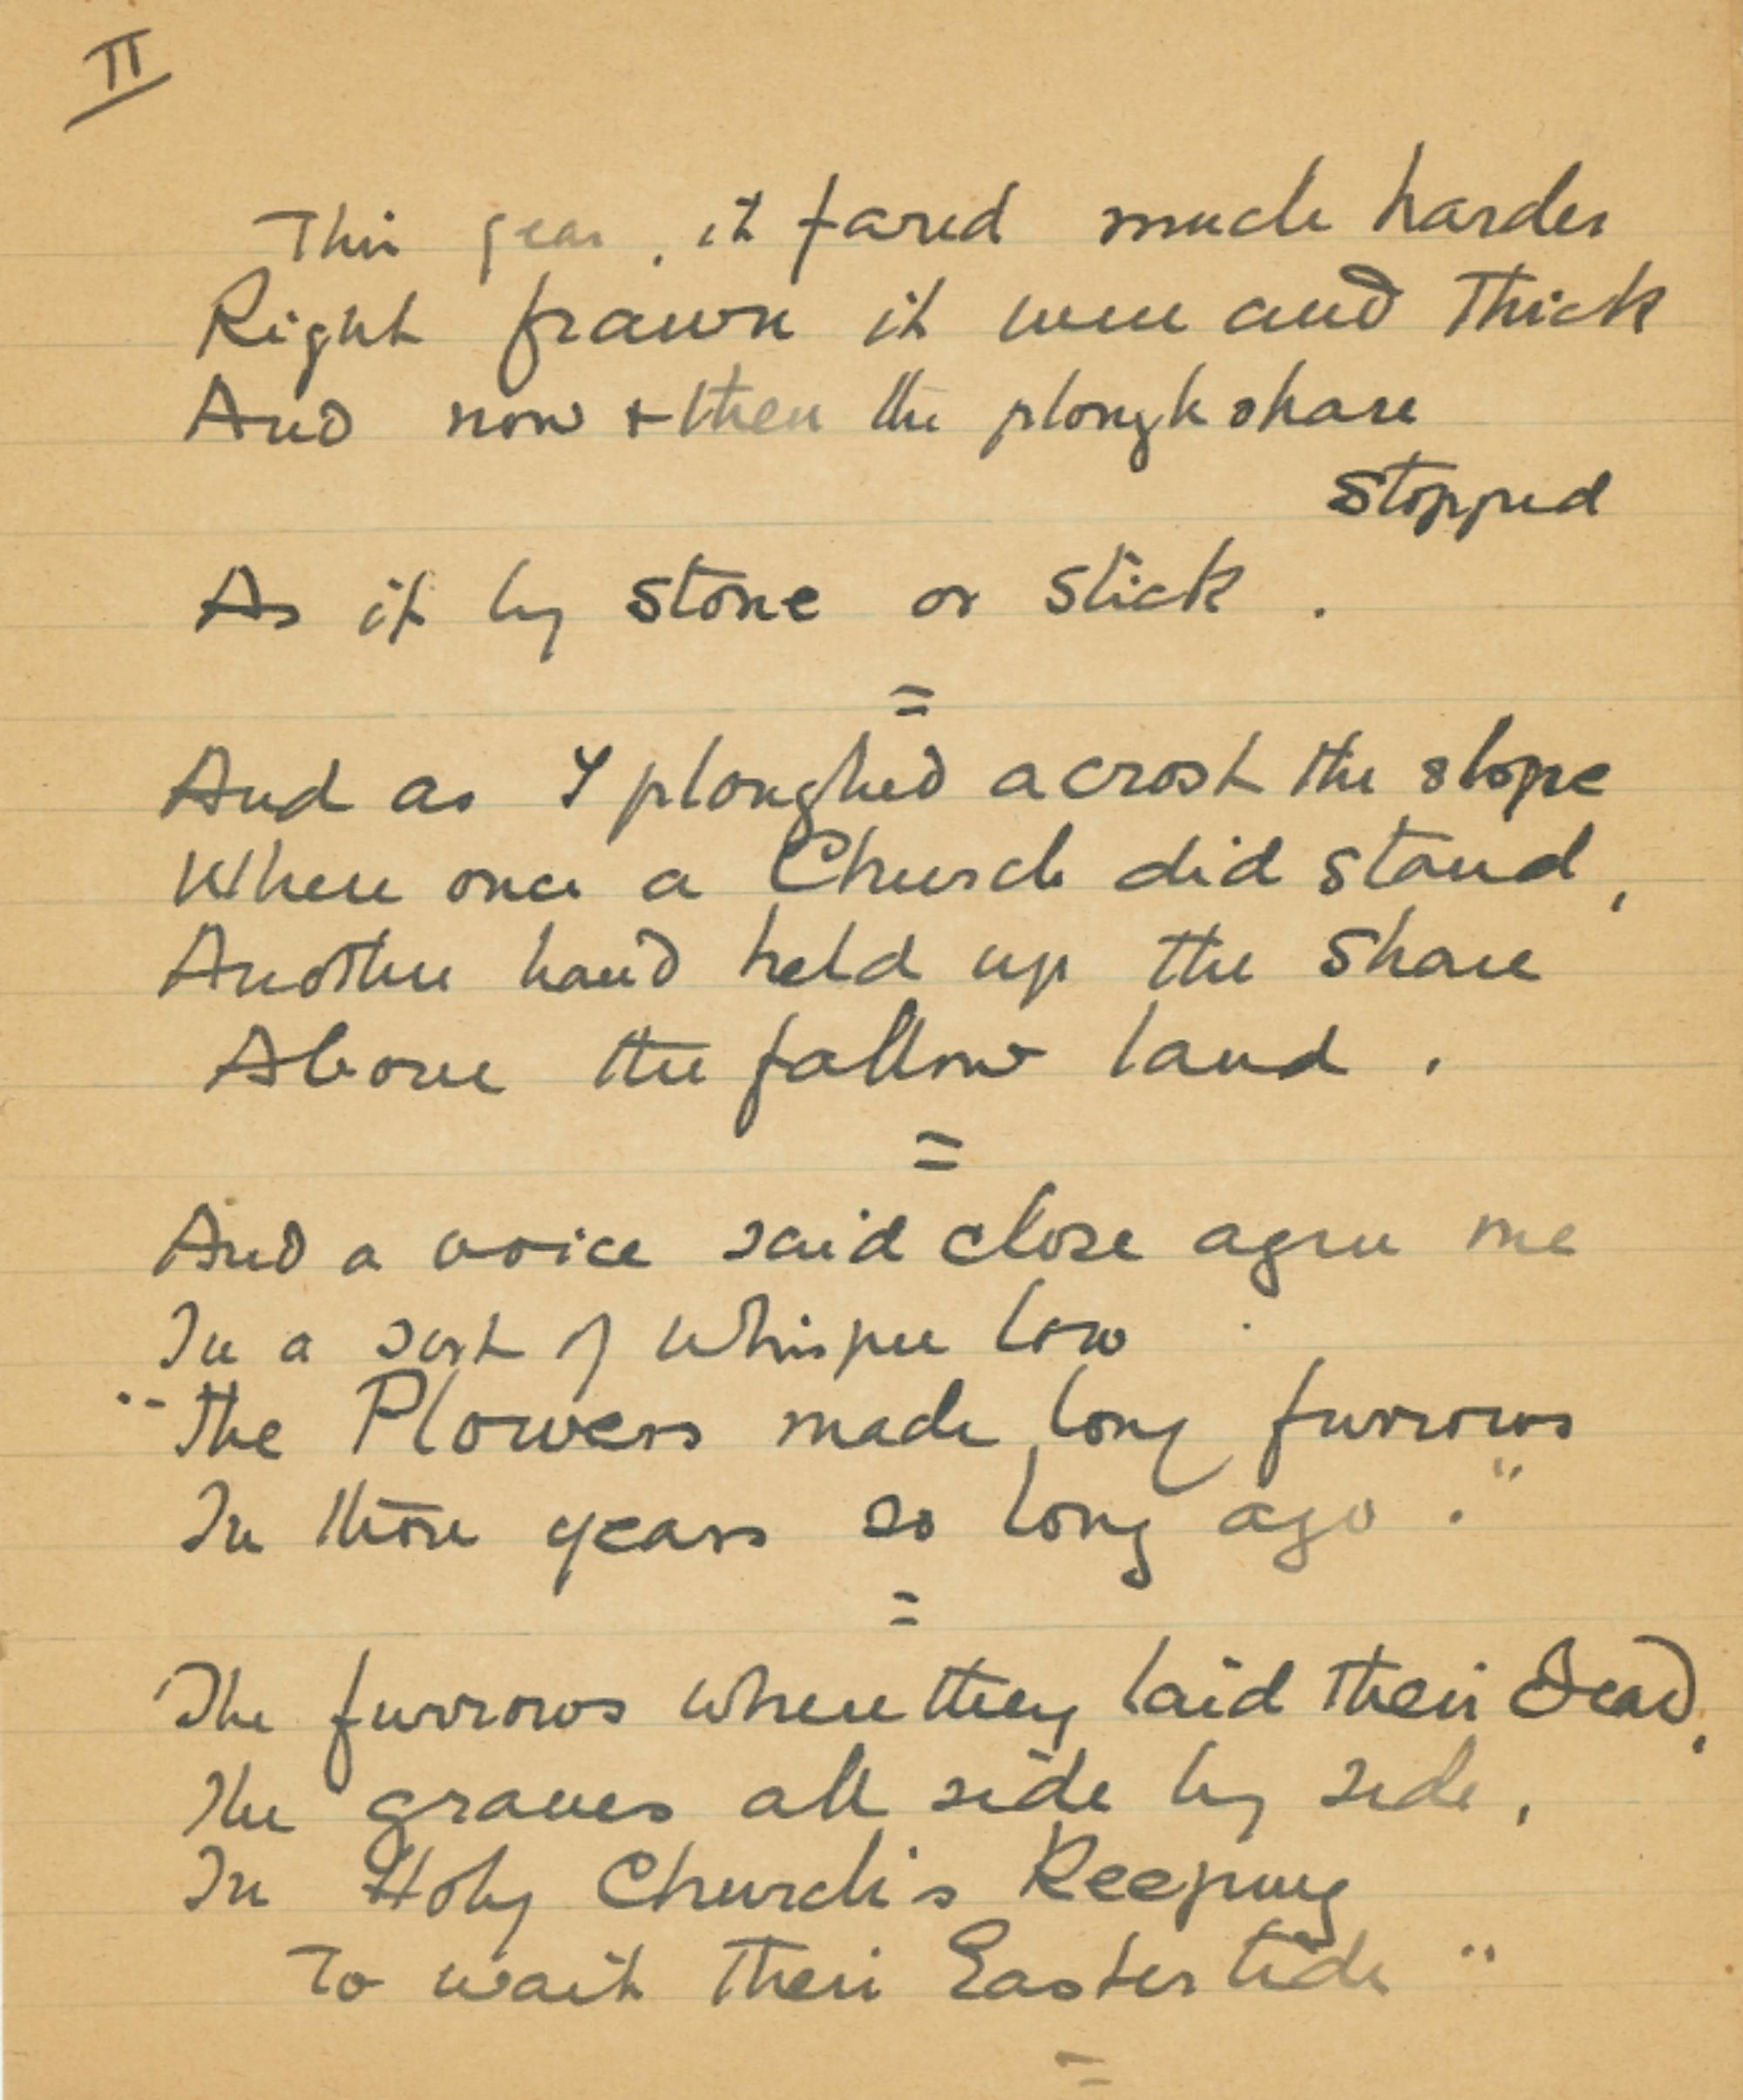 II
This year, it fared much harder
Right frawn it were and thick
And now + then the plough share
stopped
As if by stone or stick.
=
And as I ploughed acrost the slope
Where once a Church did stand,
Another hand held up the share
Above the fallow land.
=
And a voice said close agen me
In a sort of whisper low
"The Plowers made long furrows
In those years so long ago."
=
"The furrows where they laid their Dead,
The graves all side by side,
In Holy Church's Keeping
To wait their Easter tide"
=